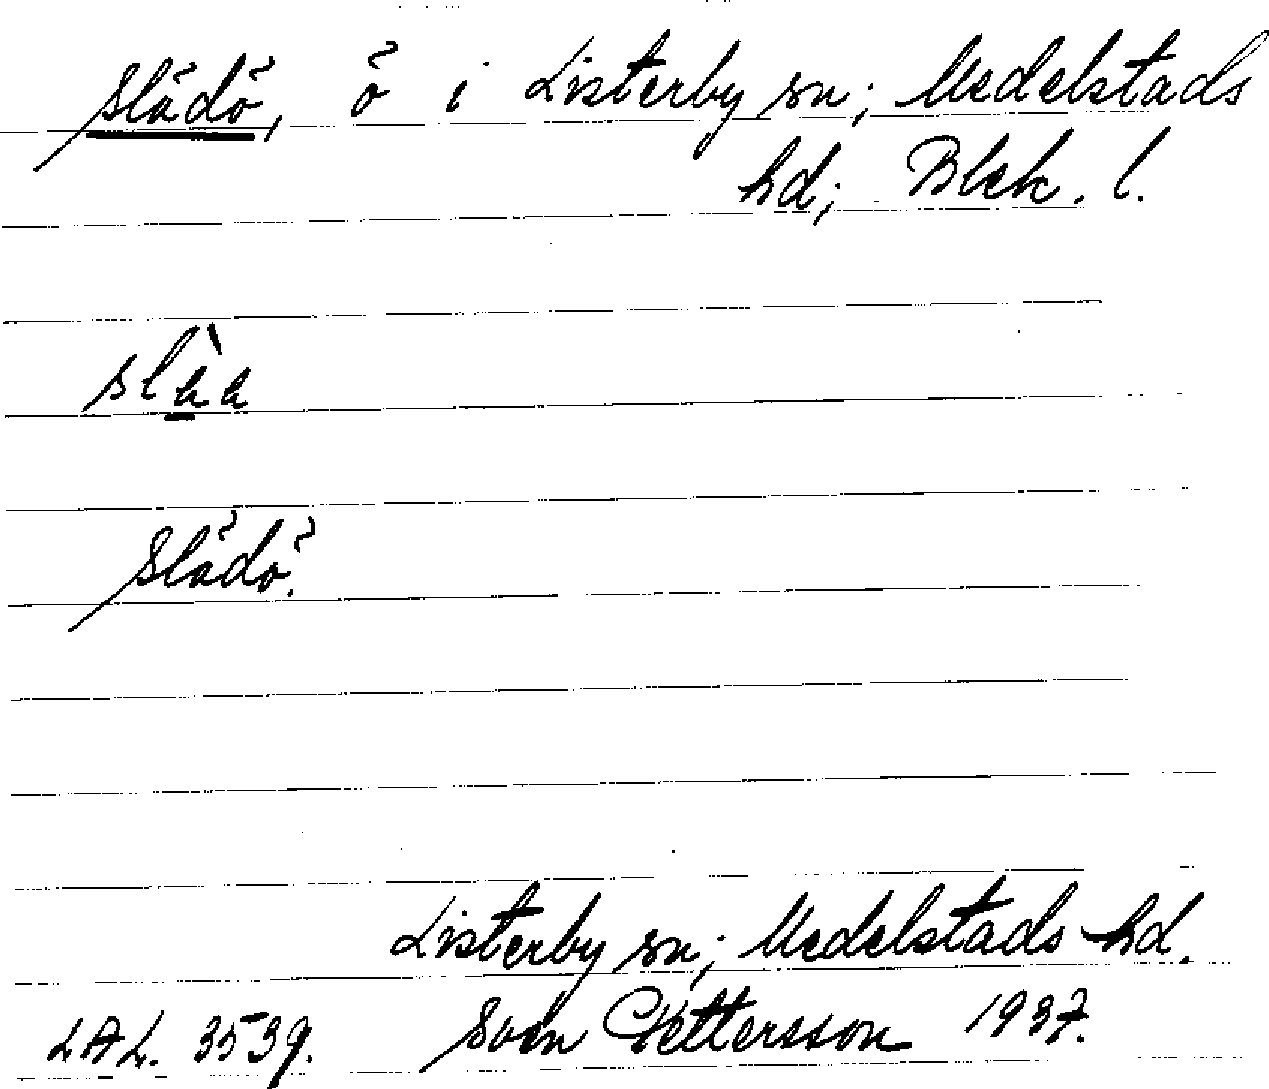 Slädö, ö i Listerby sn; Medelstads
hd; Blek. l.
slàa
Slädö.
Listerby sn; Medelstads hd.
LAL. 3539. Sven Pettersson 1937.